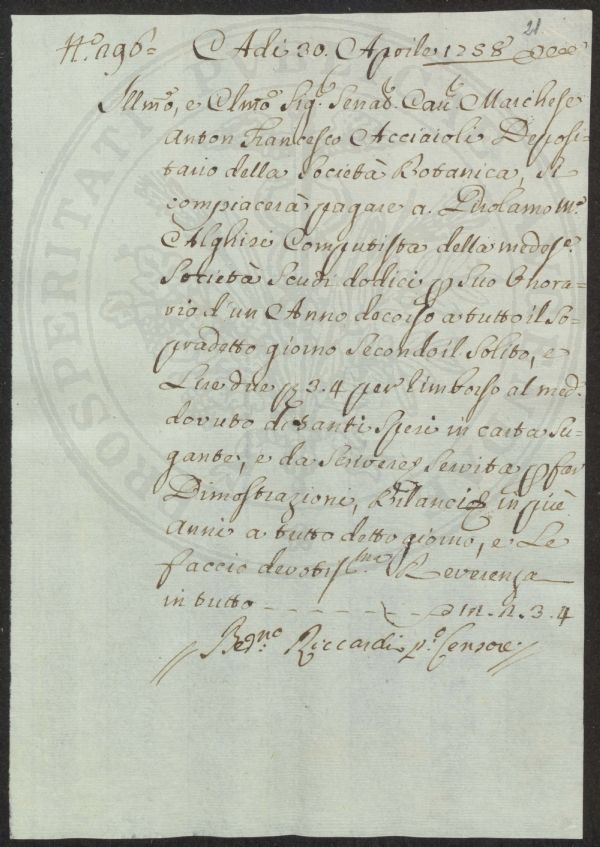 21
N.° 296= Adi 30. Aprile 1758
Illmo, e Clmo Sig.r Senat.r Cau.r Marchese
Anton Francesco Acciaioli Deposi-
tario della Società Botanica, Si
compiacerà pagare a. Girolamo M.a
Alghisi Computista della medes.a
Società Scudi dodici p Suo Onora=
rio d'un Anno decorso a tutto il so=
pradetto giorno Secondo il Solito, e
Lire due p 3.4 per rimborso al med.o
dovuto di tanti spesi in carta su=
gante, e da Scrivere Servita p far
Dimostrazioni, Bilanci in più
Anni a tutto detto giorno, e Le
faccio devotis.ma Reverenza
in tutto 2.3.4
Bed.no Riccardi p.o Censore
PROSPERITATI PVBLICAE